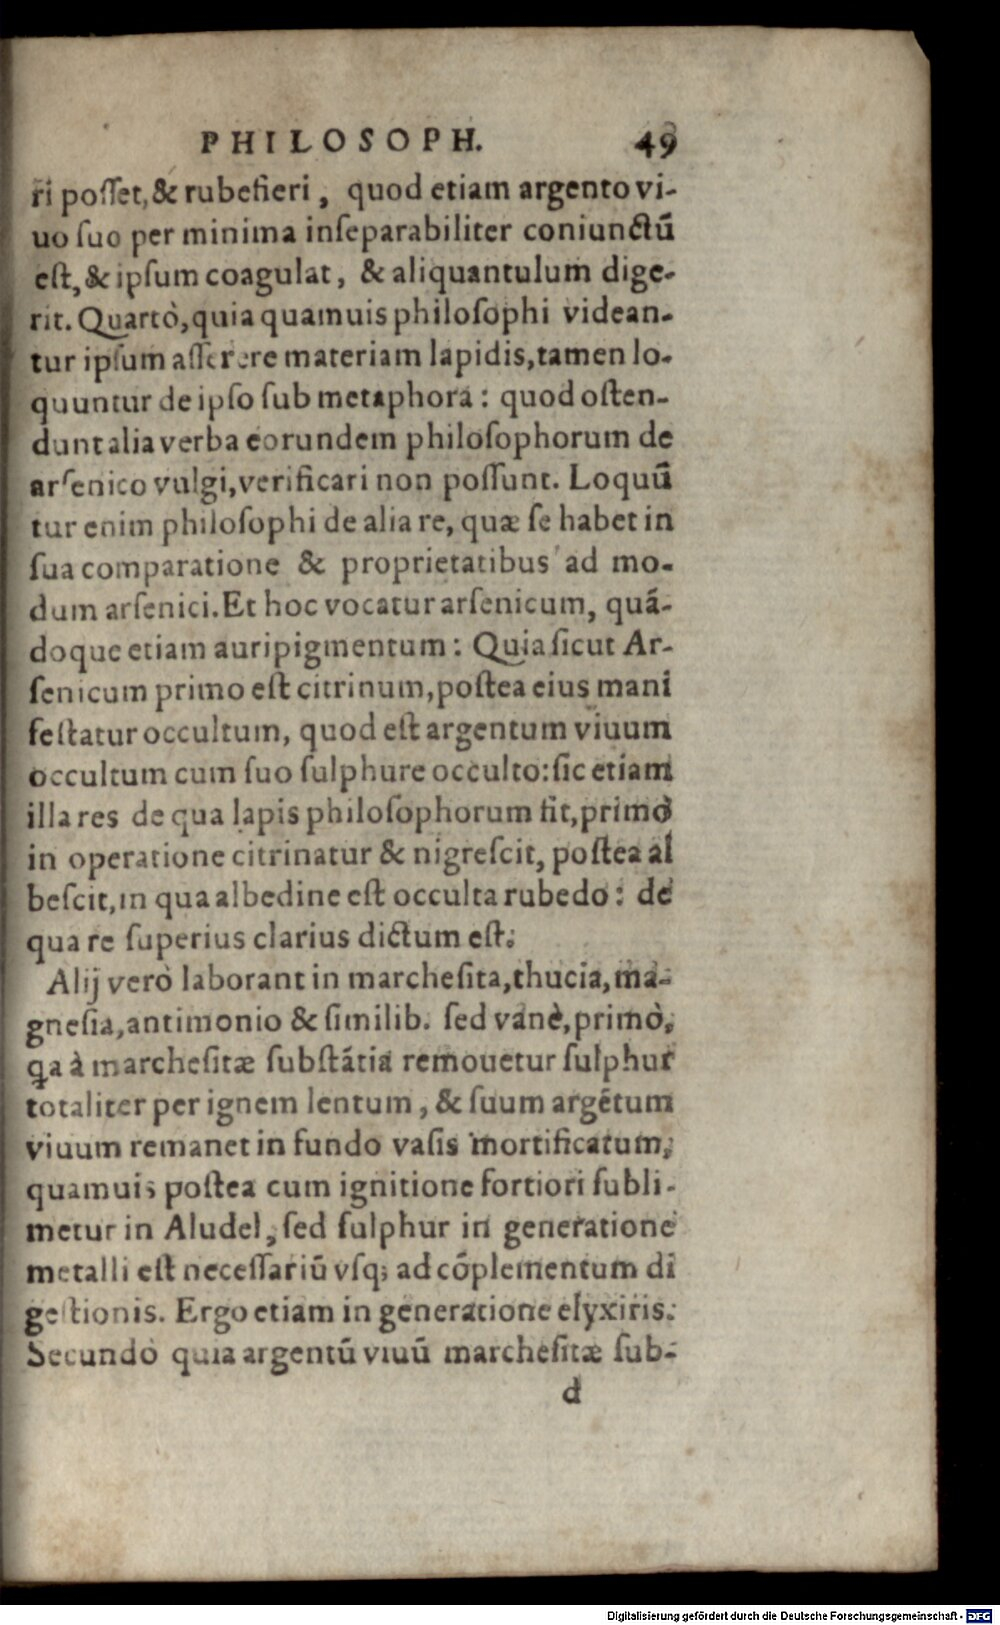 PHILOSOPH. 49
ri posſet, & rubefieri, quod etiam argento vi-
uo ſuo per minima inſeparabiliter coniunctũ
eſt, & ipſum coagulat, & aliquantulum dige-
rit. Quartò, quia quamuis philoſophi videan-
tur ipſum aſſerere materiam lapidis, tamen lo-
quuntur de ipſo ſub metaphora: quod oſten-
dunt alia verba eorundem philoſophorum de
arſenico vulgi, verificari non poſſunt. Loquũ
tur enim philoſophi de alia re, quæ ſe habet in
ſua comparatione & proprietatibus ad mo-
dum arſenici. Et hoc vocatur arſenicum, quã-
doque etiam auripigmentum: Quia ſicut Ar-
ſenicum primo eſt citrinum, poſtea eius mani
feſtatur occultum, quod eſt argentum viuum
occultum cum ſuo ſulphure occulto: ſic etiam
illa res de qua lapis philoſophorum fit, primò
in operatione citrinatur & nigreſcit, poſtea al
beſcit, in qua albedine eſt occulta rubedo: de
qua re ſuperius clarius dictum eſt.
Alij verò laborant in marcheſita, thucia, ma-
gneſia, antimonio & ſimilib. ſed vanè, primò,
ꝗa à marcheſitæ ſubſtãtia remouetur ſulphur
totaliter per ignem lentum, & ſuum argẽtum
viuum remanet in fundo vaſis mortificatum,
quamuis poſtea cum ignitione fortiori ſubli-
metur in Aludel, ſed ſulphur in generatione
metalli eſt neceſſariũ vſq; ad cõplementum di
geſtionis. Ergo etiam in generatione elyxiris.
Secundò quia argentũ viuũ marcheſitæ ſub-
d
Digitalisierung gefördert durch die Deutsche Forschungsgemeinschaft - DFG